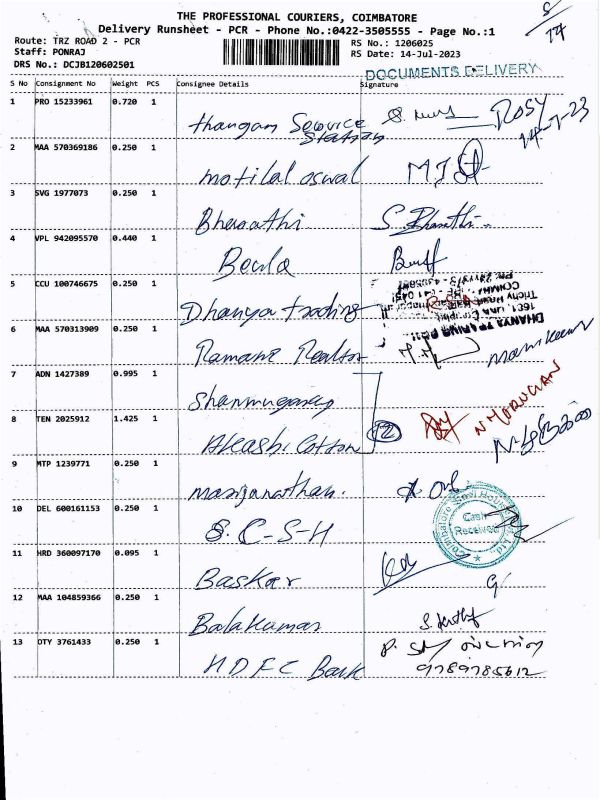 THE PROFESSIONAL COURIERS, COIMBATORE
Delivery Runsheet - PCR - Phone No.:0422-3505555 - Page No.:1
Route: TRZ ROAD 2 - PCR
RS No.: 1206025
Staff: PONRAJ
RS Date: 14-Jul-2023
DRS No.: DCJB120602501
DOCUMENTS DELIVERY
S No Consignment No Weight PCS Consignee Details Signature
1 PRO 15233961 0.720 1 Thangam Service Station ROSY
2 MAA 570369186 0.250 1 motilal oswal
3 SVG 1977073 0.250 1 Bharathi S. Bharathi
4 VPL 942095570 0.440 1 Beula
5 CCU 100746675 0.250 1 Dhanya trading
6 MAA 570313909 0.250 1 Ramani Realtor
7 ADN 1427389 0.995 1
8 TEN 2025912 1.425 1 Akashi Cotton 2 N MURUGAN
9 MTP 1239771 0.250 1 manjanathan.
10 DEL 600161153 0.250 1 S.C-S-H Cash Received
11 HRD 360097170 0.095 1 Baskar
12 MAA 104859366 0.250 1 Balakumar
13 OTY 3761433 0.250 1 HDFC Bank
9789785612